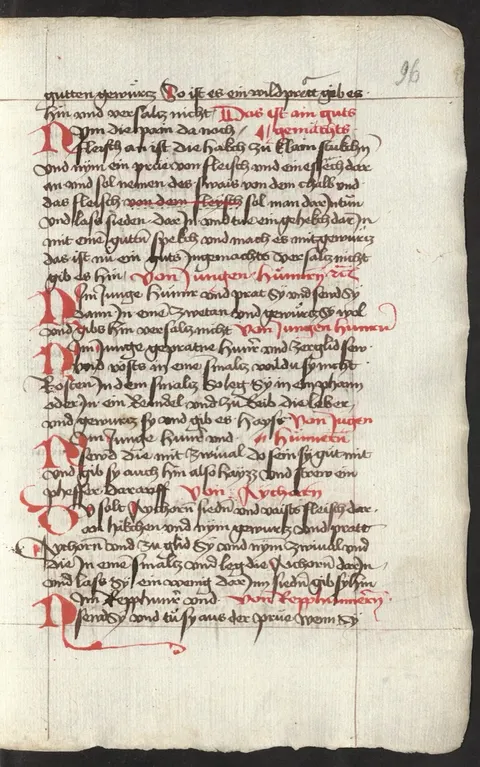 96
gutten gewurcz So ist es ein wildprätt gib es
hin und versalcz nicht Das ist ain guts
Nym die pain da noch gemächts
fleisch an ist die hakch zu klain stukchn
und nym ein prue von fleisch und ein essech dar
an und sol nemen des swais von dem chalb und
das fleisch von dem fleysch sol man dar In tun
und lass sieden dar In und tue ein gehekch dar In
mit eine guttn spekch und mach es mit gewurcz
das ist nu ein guts Ingemachts versalcz nicht
gib es hin Von Jungen hünern
Nim Junge hünr und prat Sy und send Sy
dann In eine zwetan und gewurcz Sy wol
und gibs hin versalcz nicht Von Jungen hünrn
Nim Junge gepratne hünr und zerglid sew
und rosts an eine smalcz wildu sy nicht
Rosten In dem smalcz So leg Sy in ein phann
oder In ein Reindel und zutreib die leber
und gewurcz sy und gib es hayss Von Jugen
Nim Junge hunr und hünern
sewd die mit zwiual do sein sy gut mit
und gib sy auch hin also hayzz und strew ein
pheffer darauff Von Aychorn
Du solt Aychorn siedn und vaists fleisch dar
von hakchen und nym gewurcz und pratt
Aychorn und zuglid Sy und nym zwiual und
die In eine smalcz und leg die Aychorn dar In
und lass Sy ein wenig dar Inn siedn gib sy hin
Nim Repphunr und Von Repphunnern
send Sy und tu sy aus der prue wenn Sy